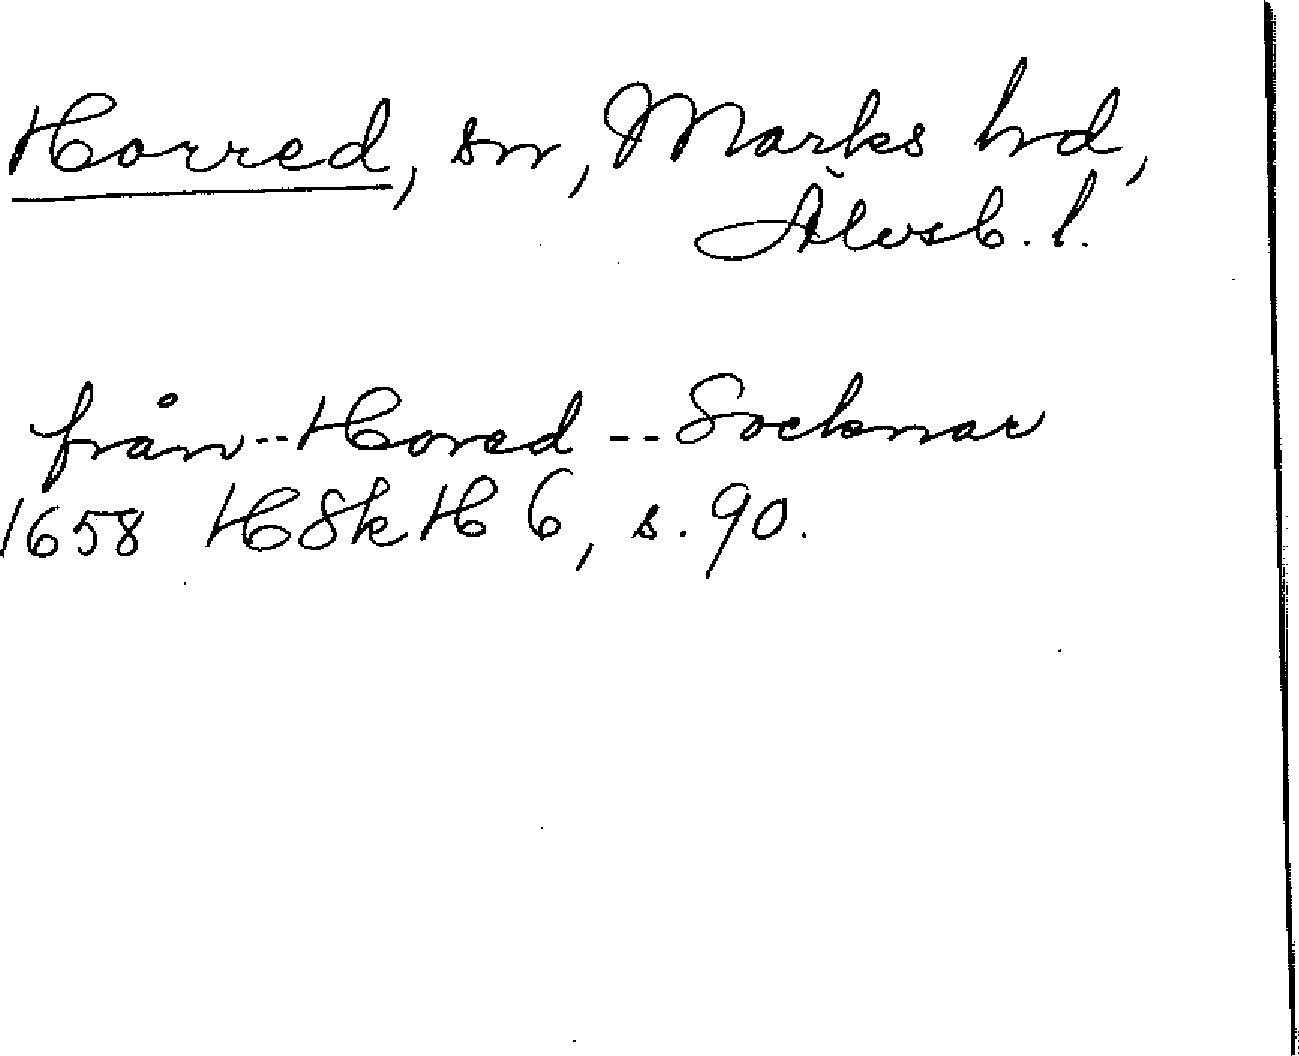 Horred, sn, Marks hd,
Älvsb. l.
från -- Hored -- Socknar
1658 HSkH 6, s. 90.